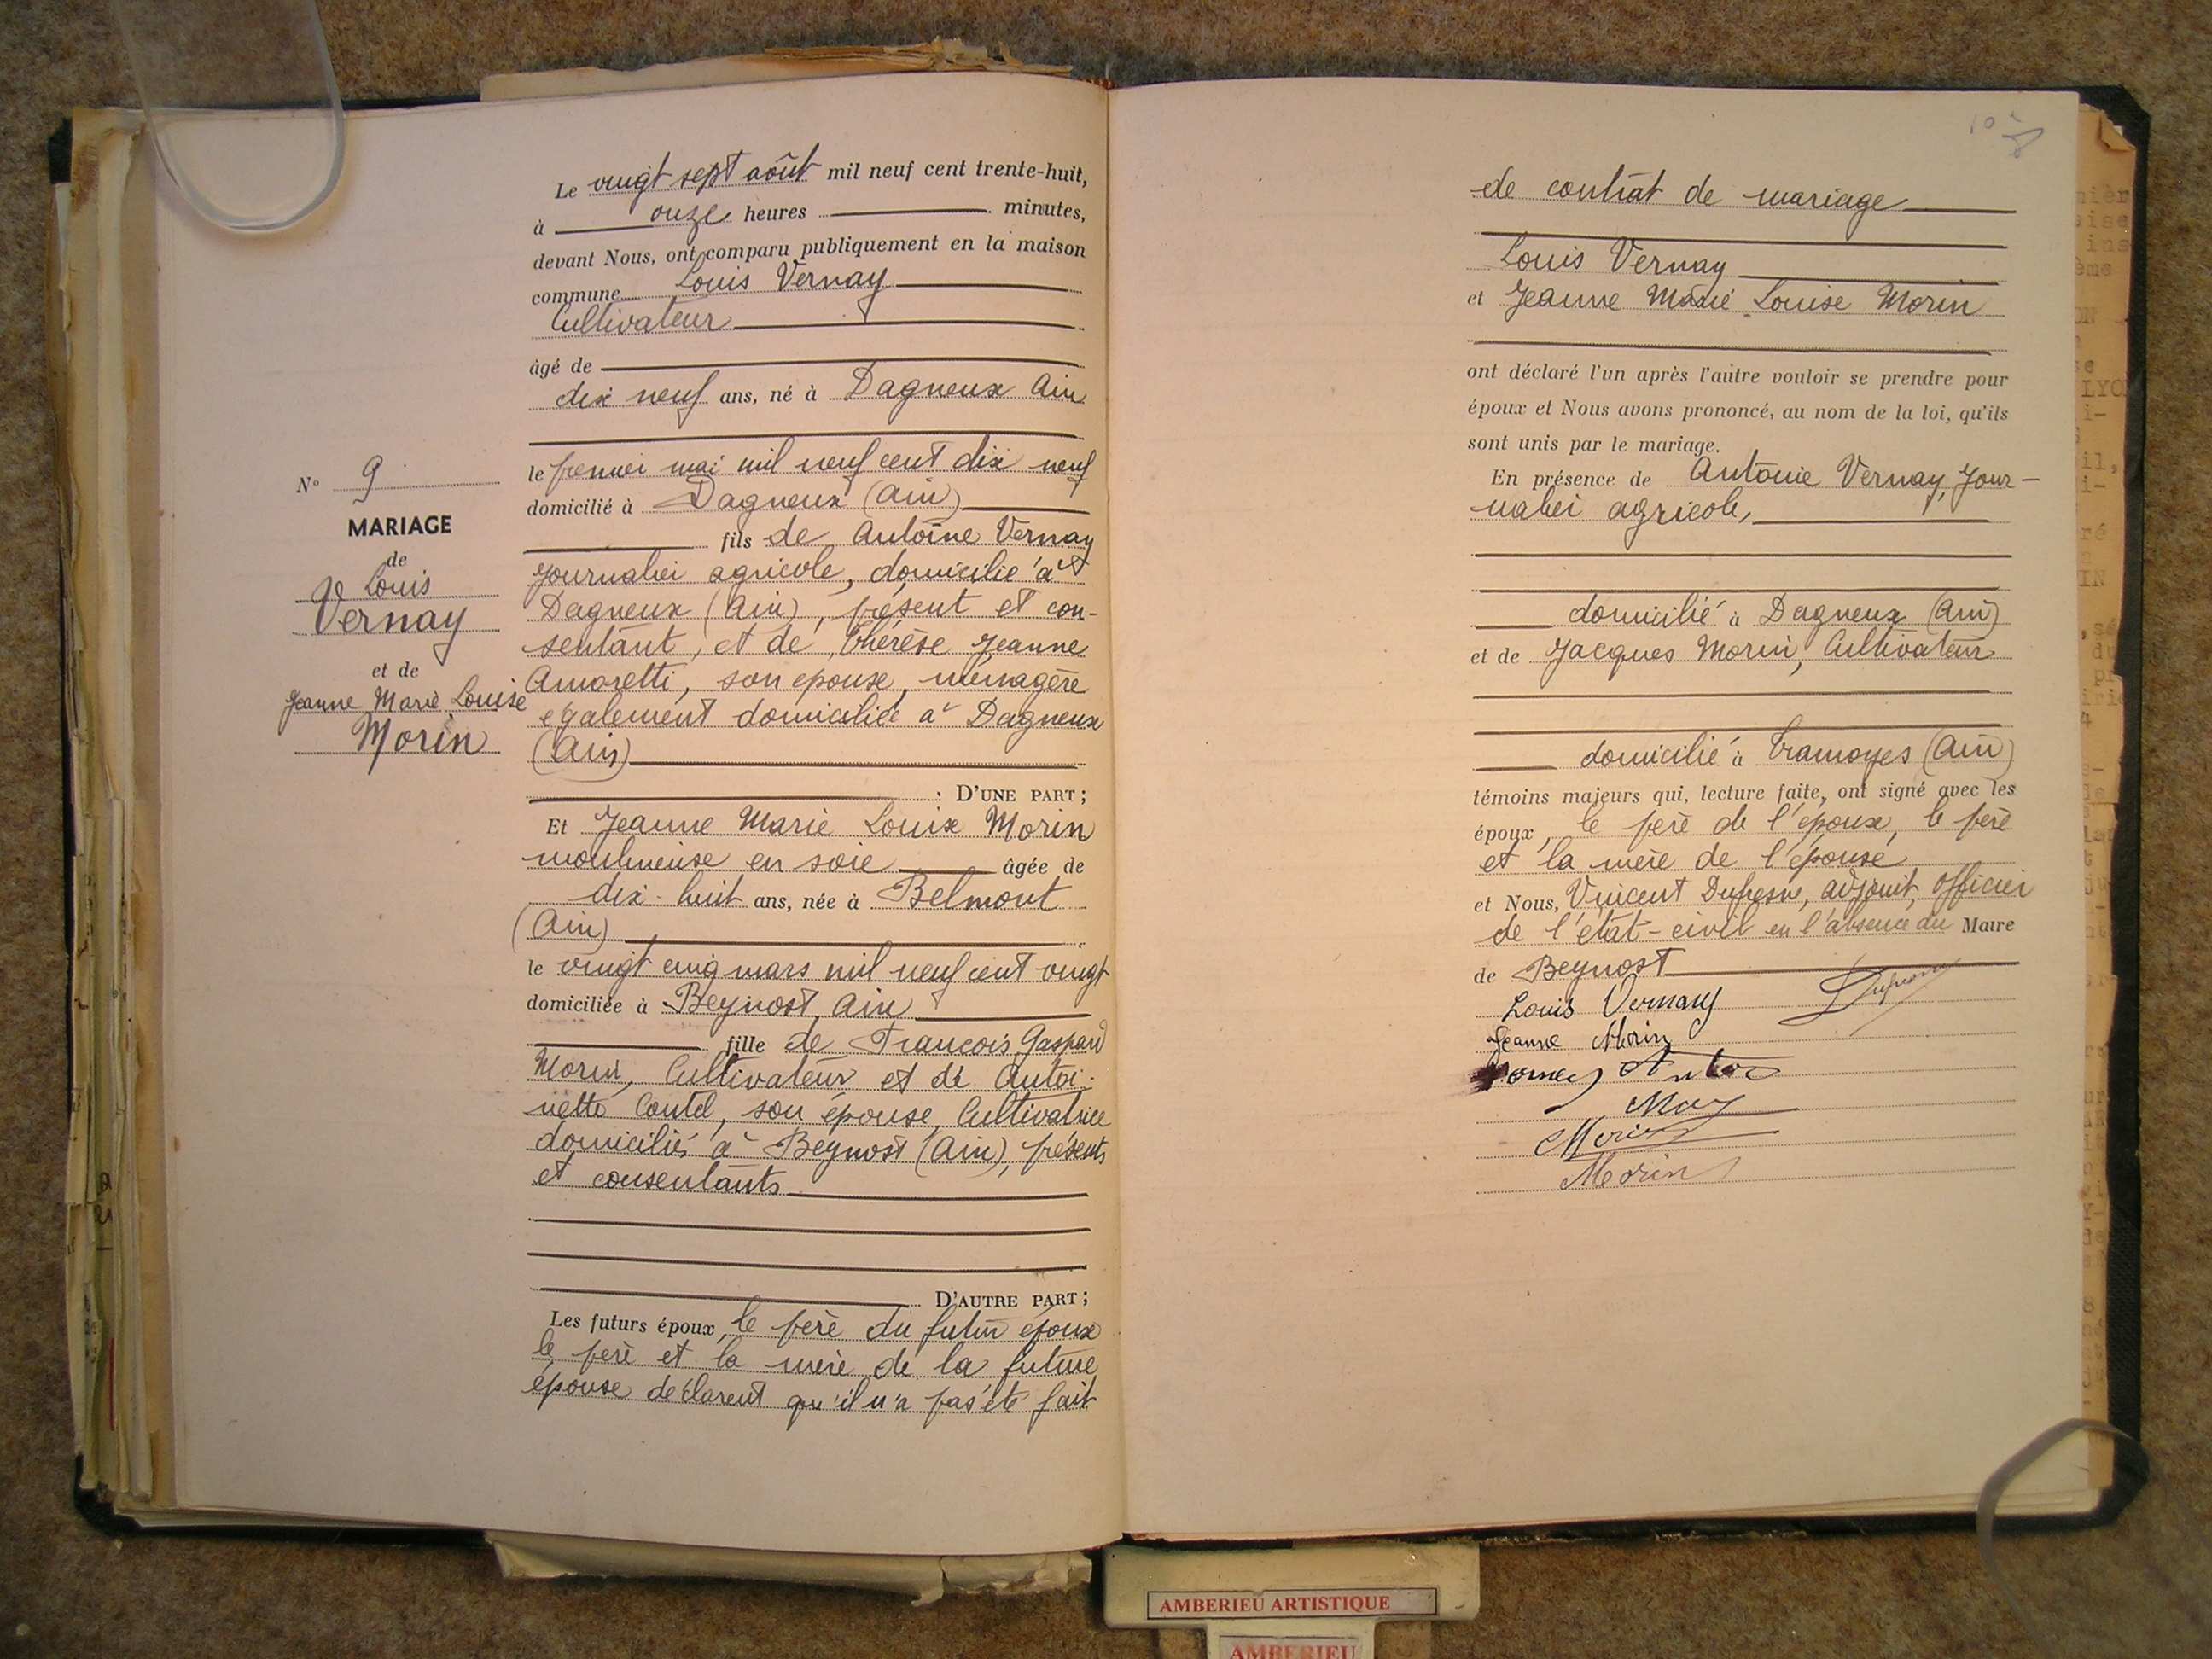 Le vingt sept août mil neuf cent trente-huit,
à onze heures minutes,
devant Nous, ont comparu publiquement en la maison
commune Louis Vernay
Cultivateur
âgé de
dix neuf ans, né à Dagneux Ain
le premier mai mil neuf cent dix neuf
domicilié à Dagneux (Ain)
fils de Antoine Vernay
journalier agricole, domicilié à
Dagneux (Ain), présent et con-
sentant, et de Thérèse Jeanne
Amoretti, son épouse, ménagère
également domiciliée à Dagneux
(Ain)
D'UNE PART ;
Et Jeanne Marie Louise Morin
moulineuse en soie âgée de
dix-huit ans, née à Belmont
(Ain)
le vingt cinq mars mil neuf cent vingt
domiciliée à Beynost, Ain
fille de François Gaspard
Morin, Cultivateur et de Antoi-
nette Contel, son épouse, Cultivatrice
domiciliés à Beynost (Ain), présents
et consentants
D'AUTRE PART ;
Les futurs époux, le père du futur époux
le père et la mère de la future
épouse déclarent qu'il n'a pas été fait
N° 9
MARIAGE
de
Louis
Vernay
et de
Jeanne Marie Louise
Morin
10
de contrat de mariage
Louis Vernay
et Jeanne Marie Louise Morin
ont déclaré l'un après l'autre vouloir se prendre pour
époux et Nous avons prononcé, au nom de la loi, qu'ils
sont unis par le mariage.
En présence de Antoine Vernay, Jour-
nalier agricole,
domicilié à Dagneux (Ain)
et de Jacques Morin, Cultivateur
domicilié à Tramoyes (Ain)
témoins majeurs qui, lecture faite, ont signé avec les
époux, le père de l'époux, le père
et la mère de l'épouse
et Nous, Vincent Dufresne, adjoint, officier
de l'état-civil en l'absence du Maire
de Beynost
Louis Vernay Dufresne
Jeanne Morin
Morin
Morin
AMBERIEU ARTISTIQUE
AMBERIEU